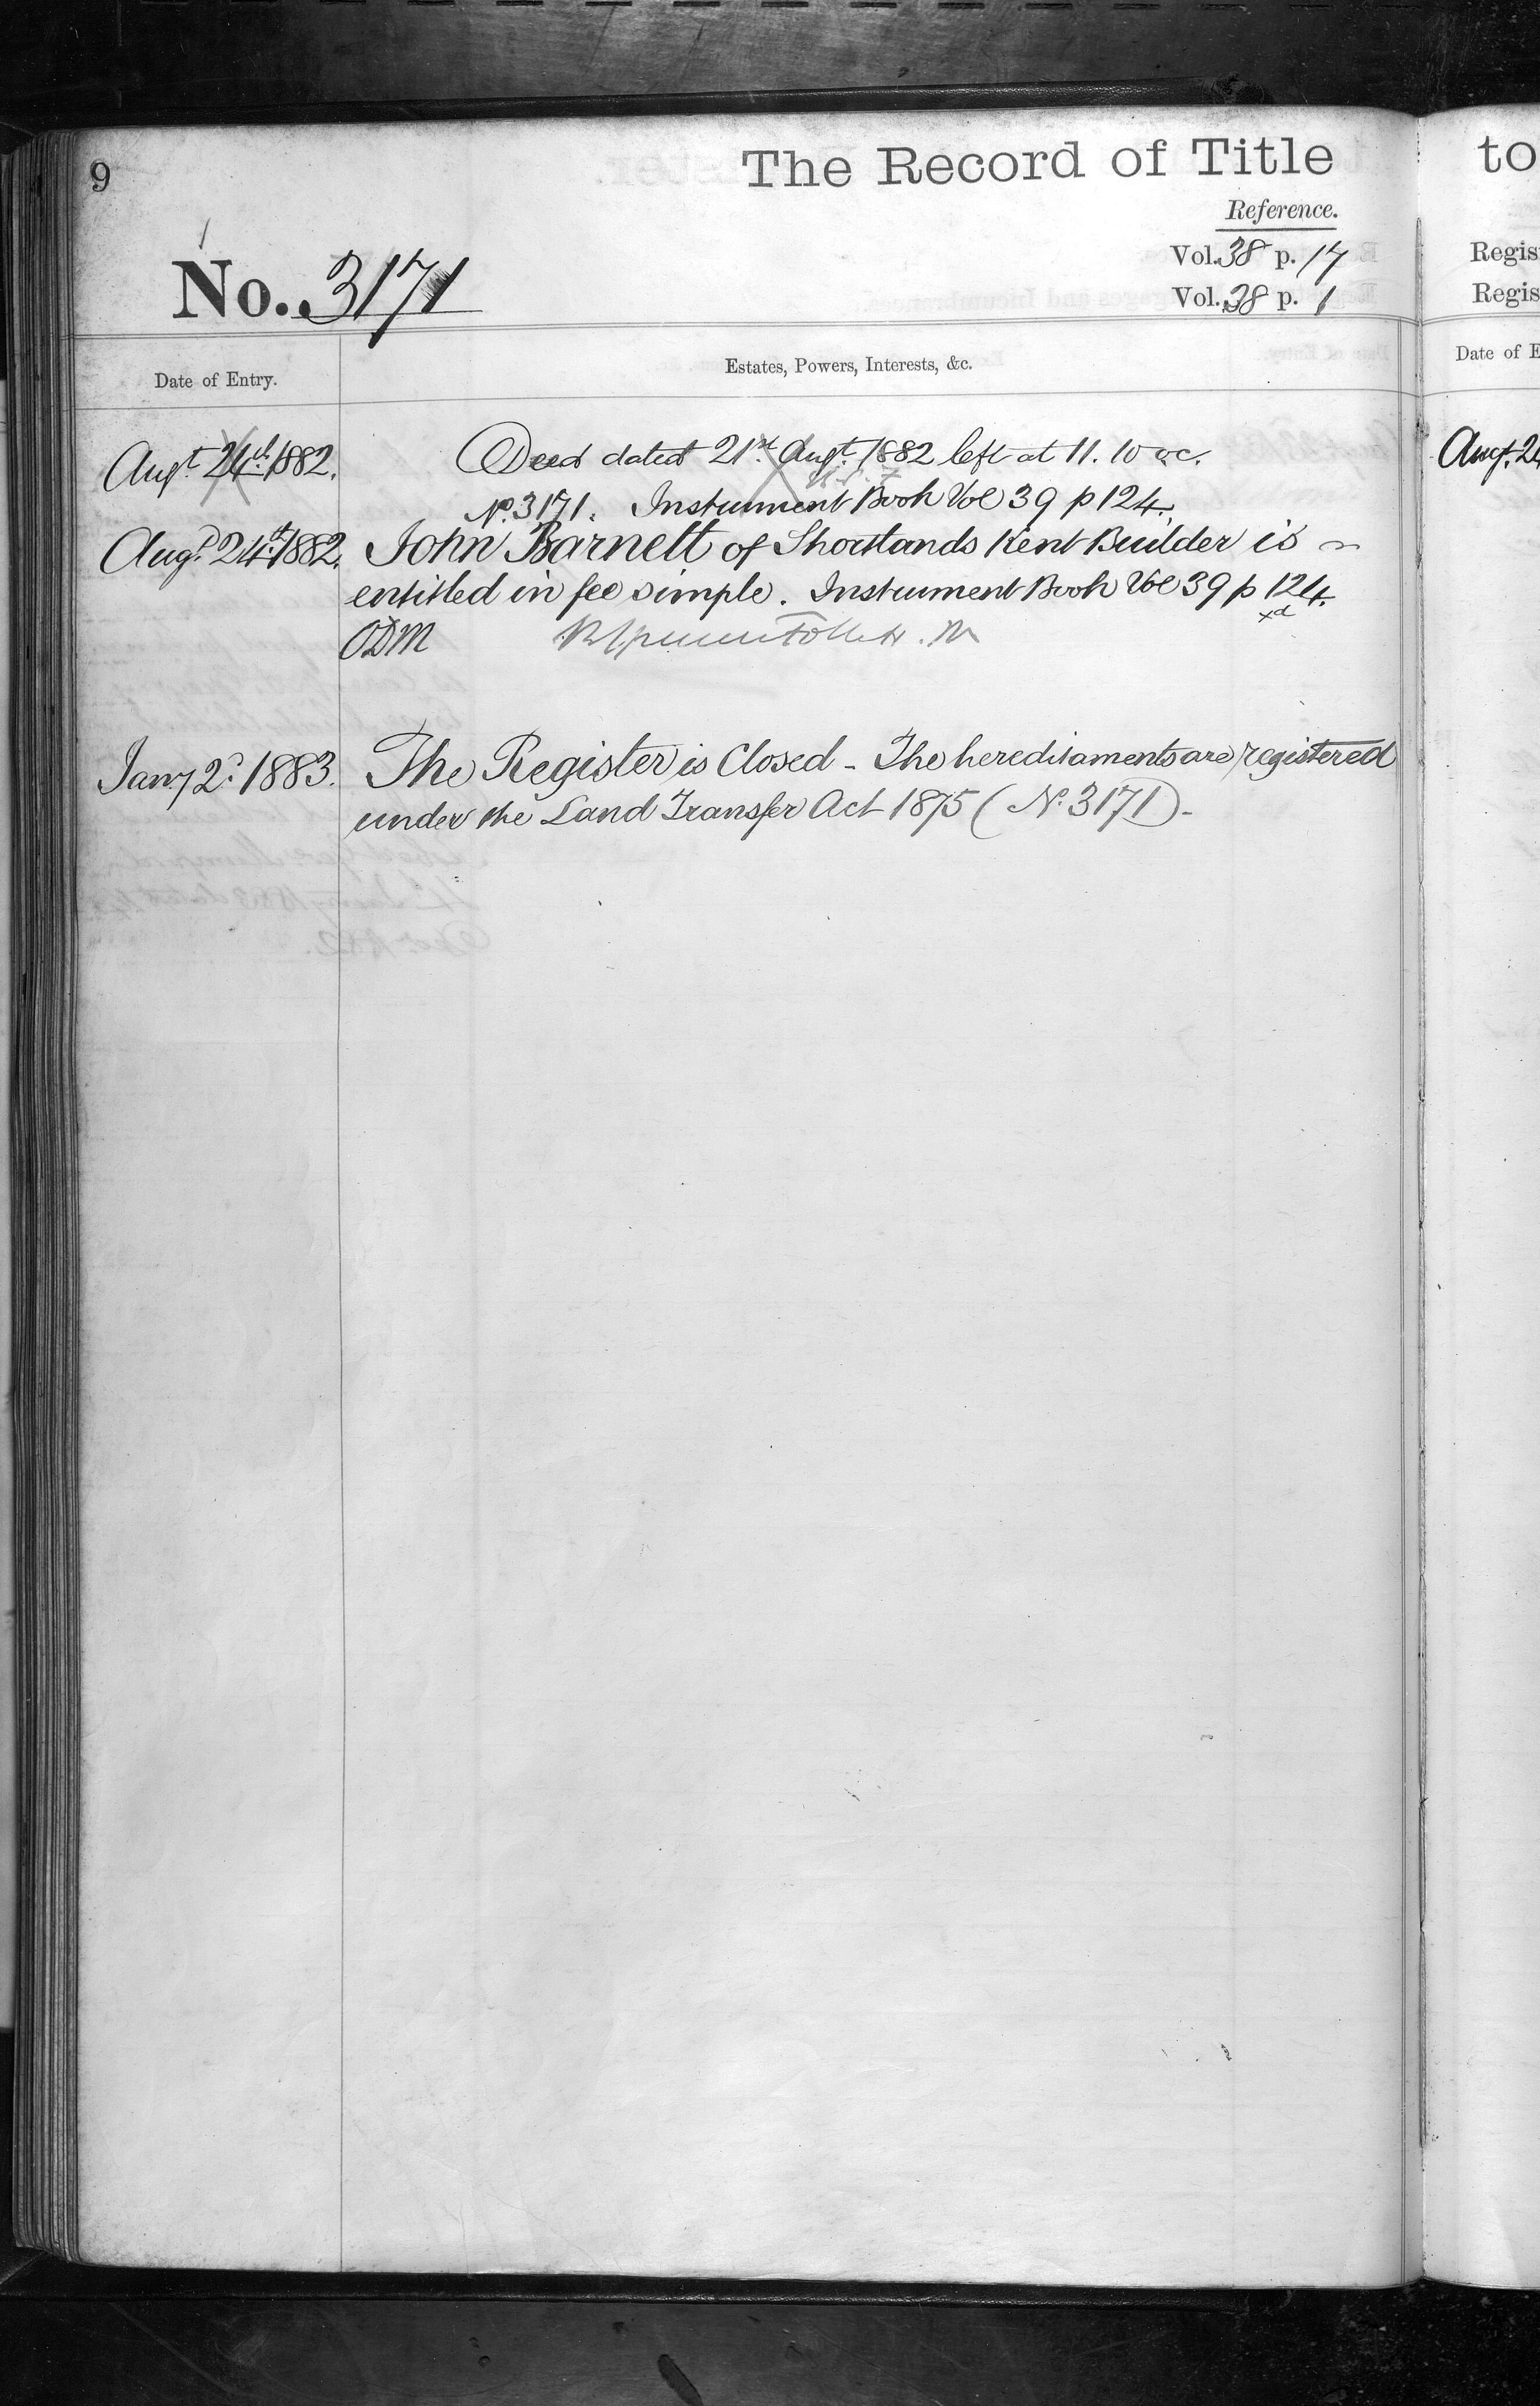 9
The Record of Title
Reference.
No. 3171
Vol. 38 p. 17
Vol. 38 p. 1
Date of Entry.
Estates, Powers, Interests, &c.
Augt 24th 1882.
Deed dated 21st Augt. 1882 left at 11. 10 oc.
No. 3171. Instrument Book Vol 39 p 124.
Augt 24th 1882.
John Barnett of Shortlands Kent Builder is
entitled in fee simple. Instrument Book Vol 39 p 124.
xd
ODM
Jany 2d 1883.
The Register is Closed - The hereditaments are registered
under the Land Transfer Act 1875 (No. 3171) -
to
Regis
Regis
Date of E
Augt. 24